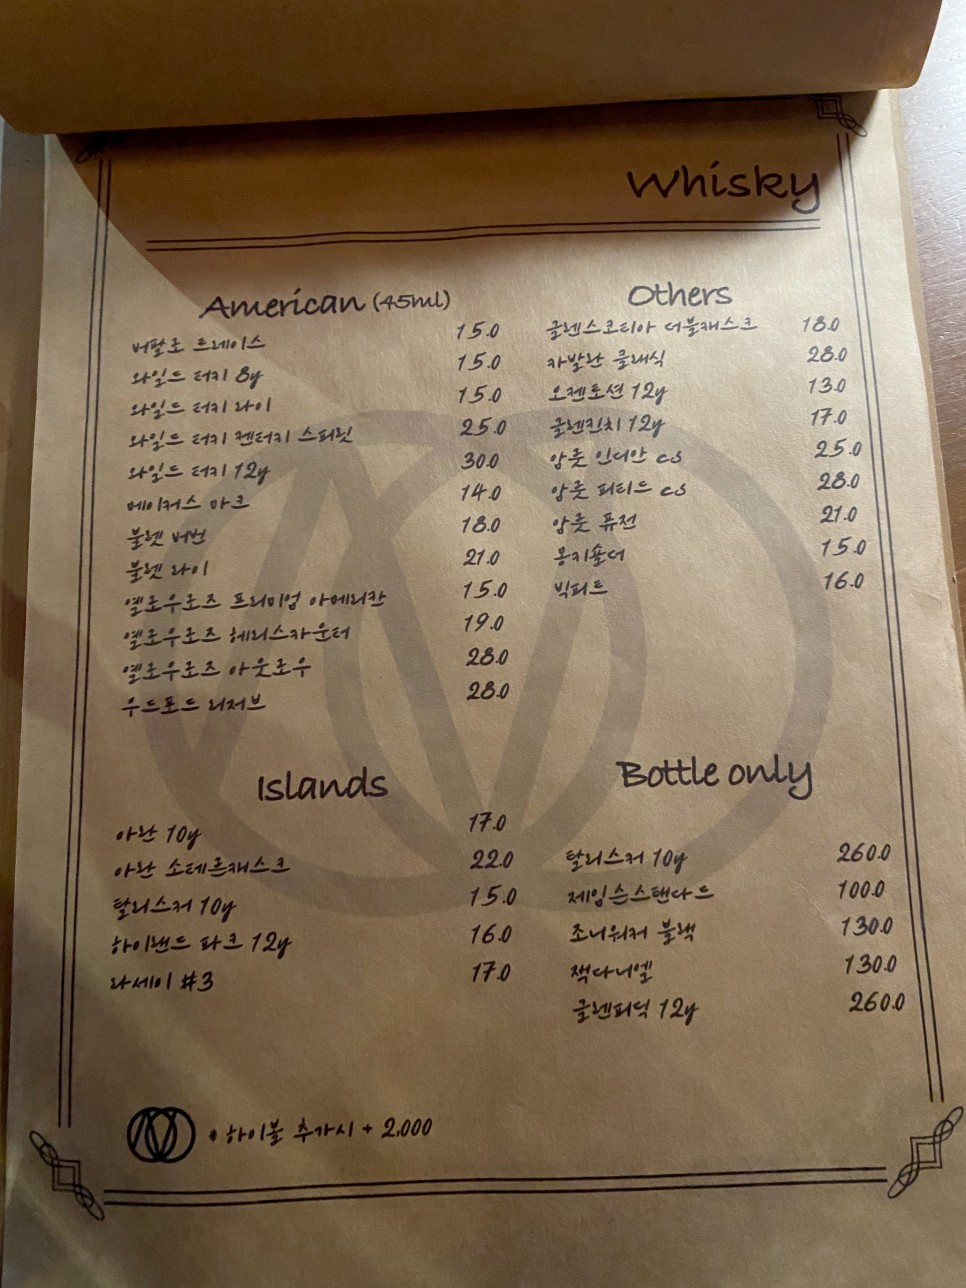 Whisky
American (45ml)
버팔로 트레이스 15.0
와일드 터키 8y 15.0
와일드 터키 라이 15.0
와일드 터키 켄터키 스피릿 25.0
와일드 터키 12y 30.0
메이커스 마크 14.0
불렛 버번 18.0
불렛 라이 21.0
옐로우로즈 프리미엄 아메리칸 15.0
옐로우로즈 헤리스카운터 19.0
옐로우로즈 아웃로우 28.0
우드포드 리저브 28.0
Others
글렌스코티아 더블캐스크 18.0
카발란 클래식 28.0
오켄토션 12y 13.0
글렌킨치 12y 17.0
암룻 인디안 cs 25.0
암룻 피티드 cs 28.0
암룻 퓨전 21.0
몽키숄더 15.0
빅피트 16.0
Islands
아란 10y 17.0
아란 소테른캐스크 22.0
탈리스커 10y 15.0
하이랜드 파크 12y 16.0
라세이 #3 17.0
Bottle only
탈리스커 10y 260.0
제임슨스탠다드 100.0
조니워커 블랙 130.0
잭다니엘 130.0
글렌피딕 12y 260.0
* 하이볼 추가시 + 2,000